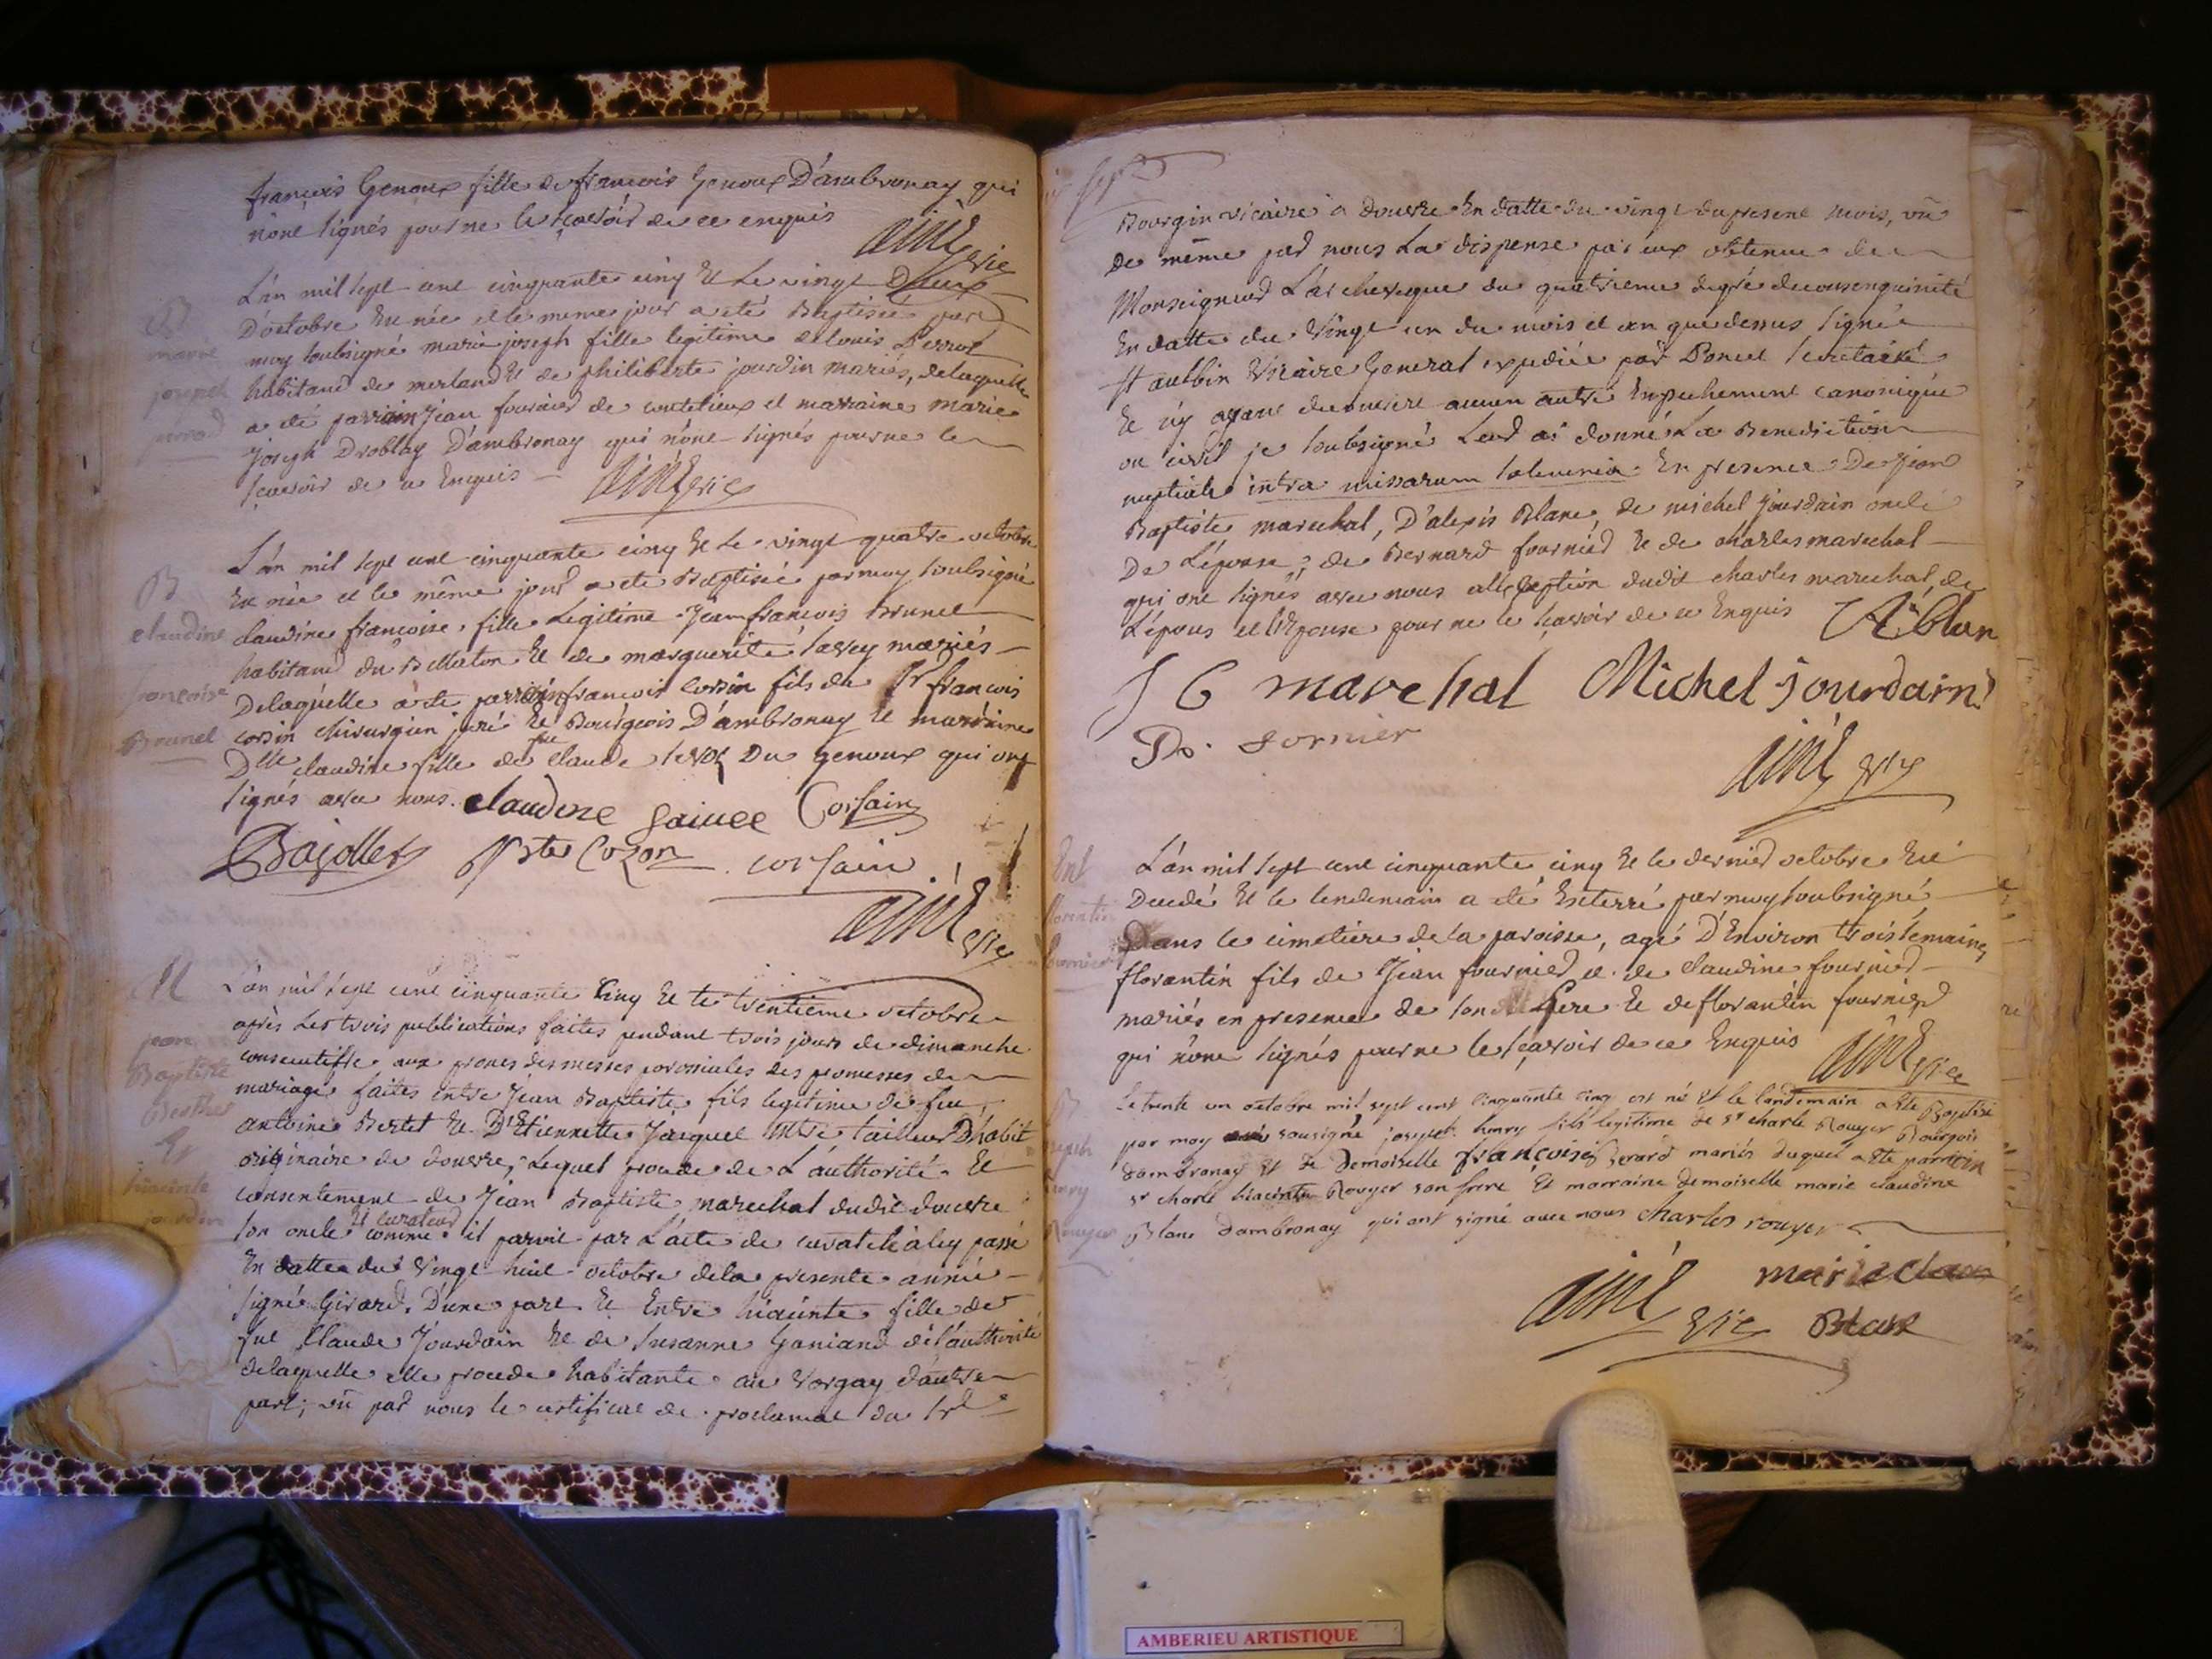 françois Genoux fille de françois Genoux D'ambronay qui
n'ont signés pour ne le sçavoir de ce enquis
aimé vic
B
marie
joseph
perrod
L'an mil sept cent cinquante cinq Et Le vingt Deux
D'octobre Est née et le meme jour a eté Baptisée par
moy soubsigné marie joseph fille legitime de louis Perrod
habitand de merland Et de philiberte jourdin mariés, de laquelle
a eté parrain jean fournier de coutelieux et marraine marie
joseph Droblay D'ambronay qui n'ont signés pour ne le
sçavoir de ce Enquis
aimé vic
B
claudine
françoise
Brunel
L'an mil sept cent cinquante cinq Et Le vingt quatre octobre
Est née et le même jour a eté Baptisée par moy soubsigné
claudine françoise fille Legitime Jean francois Brunel
habitand du Bellaton Et de marguerite savey mariés
Delaquelle a ete parrain francois corsin fils du Sr francois
corsin chirurgien juré Et Bourgeois D'ambronay Et marraine
Dlle claudine fille de feu claude Du Genoux qui ont
signés avec nous. claudine Corsain
Bajollet ptre Cozon corsain
aimé vic
M
jean
Baptiste
Berthet
&
hiacinte
jourdin
L'an mil sept cent cinquante Cinq Et le trentieme octobre
après Les trois publications faites pendant trois jours de dimanche
consecutifs aux prones des messes paroissiales des promesses de
mariage faites Entre Jean Baptiste fils legitime de feu
antoine Bertet Et D'Etiennette Jacquet tailleur D'habit
originaire de douvre, Lequel procede de L'authorité Et
consentement de Jean Baptiste marechal dudit douvre
son oncle Et curateur comme il paroit par L'acte de passé
En datte du vingt huit octobre dela presente année
signé Girard. D'une part. Et Entre hiacinte fille de
feu Claude Jourdain Et de Susanne Ganiand de l'authorité
delaquelle elle procede habitante au Vorgay d'autre
part; vû par nous le certificat de proclamat du Sr
Bourgin vicaire a douvre En datte du vingt du present mois, vû
de même par nous La dispense par eux obtenue de
Monseigneur L'archeveque du quatrieme degré de consenguinité
En datte du Vingt un du mois et an que dessus signée
St aubbin Vicaire General expediée par Poncet Secretaire
Et n'y ayant decouvert aucun autre Empechement canonique
ou civil je soubsigné Leur ai donné La Benediction
nuptiale intra missarum solemnia En presence De Jean
Baptiste marechal, D'alexis Blanc de michel Jourdain oncle
De L'épouse; de Bernard fournier Et de charles marechal
qui ont signés avec nous alexception dudit charles marechal, de
L'épous et L'Epouse pour ne le sçavoir de ce Enquis A. blan
J b marechal Michel jourdain
fornier
aimé vic
Ent
florentin
fournier
L'an mil sept cent cinquante cinq Et le dernier octobre Est
Decedé Et le lendemain a eté Enterré par moy soubsigné
Dans le cimetiere dela paroisse, agé D'Environ trois semaines
florantin fils de Jean fournier et de claudine fournier
mariés en presence de son Pere Et de florantin fournier
qui n'ont signés pour ne le sçavoir de ce Enquis
aimé vic
B
joseph
henry
Rouyer
Le trente un octobre mil sept cent cinquante cinq est né et le landemain a ete Baptisé
par moy sousigné joseph henry fils legitime de sr charle Rouyer Bourgois
dambronay et de Demoiselle françoise Gerard mariés duquel a ete parrain
sr charle hiacinte Rouyer son frere Et marraine demoiselle marie claudine
Blanc dambronay qui ont signé avec nous charles rouyer
aimé vic
marie clau
Blanc
AMBERIEU ARTISTIQUE